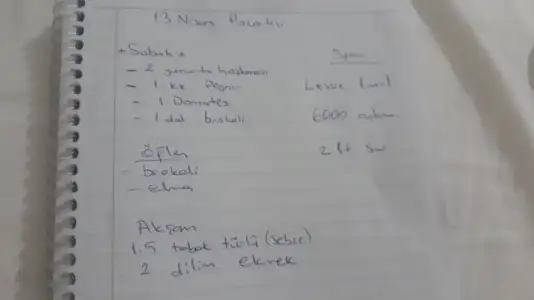 13 Nisan Pazartesi
Sabah:
- 2 yumurta haşlanmış
- 1 kk Peynir
- 1 Domates
- 1 dal brokoli
Öğlen
- brokoli
- elma
Akşam
1.5 tabak türlü (sebze)
2 dilim ekmek
Spor
6000 adım
2 lt su